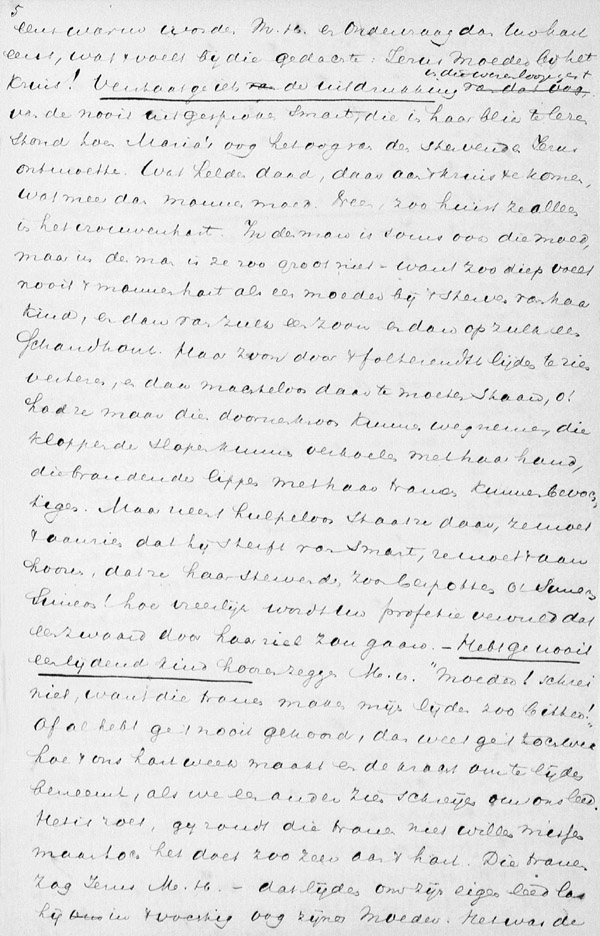 5
eens warm worden M. H. en ondervraag dan Uw hart
eens, wat voelt bij die gedachte: Jezus Moeder bij het
en die weerloosheid
Kruis! Verstaat ge iets van de uitdrukking van dat oog,
van de nooit uitgesproken smart, die in haar blik te lezen
stond toen Maria's oog het oog van den stervenden Jezus
ontmoette. Wat heldendaad, daar aan 't kruis te komen,
wat meer dan mannenmoed. Neen, zoo huist ze alleen
in het vrouwenhart. In den man is soms ook die moed,
maar in den man is ze zoo groot niet – want zoo diep voelt
nooit 't mannenhart als een moeder bij 't sterven van haar
kind, en dan van zulk een zoon en dan op zulk een
Schandhout. Haar zoon door 't folterendst lijden te zien
verteren, en dan machteloos daar te moeten staan, o!
had ze maar die doornenkroon kunnen wegnemen, die
kloppende slapen kunnen verkoelen met haar hand,
die brandende lippen met haar tranen kunnen bevoch-
tigen. Maar neen hulpeloos staat ze daar, ze moet
't aanzien dat hij sterft van smart, ze moet 't aan
hooren, dat ze haar stervenden zoon bespotten o! Simeon
Simeon! hoe vreeslijk wordt Uw profetie vervuld dat
een zwaard door haar ziel zou gaan. – Hebt ge nooit
een lijdend kind hooren zeggen M. H. "Moeder! schrei
niet, want die tranen maken mijn lijden zoo bitter!"
Of al hebt ge 't nooit gehoord, dan weet ge 't toch wel
hoe 't ons hart week maakt en de kracht om te lijden
beneemt, als we een ander zien schreien om ons leed.
Het is zoet, gij zoudt die tranen niet willen missen
maar toch het doet zoo zeer aan 't hart. Die tranen
zag Jezus M. H. – dat lijden om zijn eigen leed las
hij in 't vochtig oog zijner Moeder. Het was de